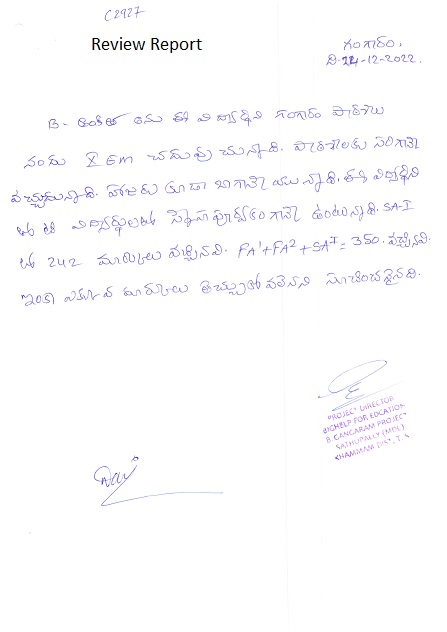 C2927
Review Report
గంగారం,
ది-24-12-2022.
B- అంకిత అను ఈ విద్యార్థిని గంగారం పాఠశాల
నందు X EM చదువు చున్నాది. పాఠశాలకు సరిగానె
వచ్చుచున్నాది. హాజరు కూడా బాగానె యున్నాది. ఈ విద్యార్థిని
తోటి విద్యార్థులతో స్నేహపూర్వకంగానె ఉంటున్నాది. SA-I
లో 242 మార్కులు వచ్చినవి. FA1+FA2+SAI=350. వచ్చినవి.
ఇంకా ఎక్కువ మార్కులు తెచ్చుకోవలెనని సూచించనైనది.
PROJECT DIRECTOR
BIGHELP FOR EDCATION
B. GANGARAM PROJECT
SATHUPALLY (MDL)
KHAMMAM DIST, T.S